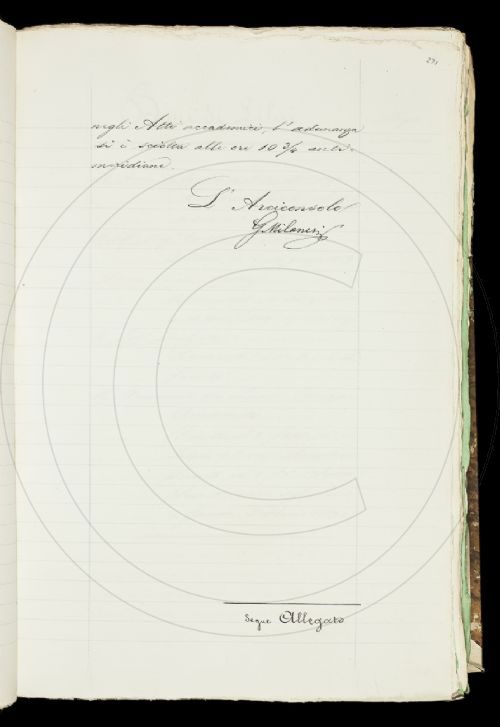 271
negli Atti accademici, l'adunanza
si è sciolta alle ore 10 3/4 anti-
meridiane.
L'Arciconsolo
G Milanesi
Segue Allegato